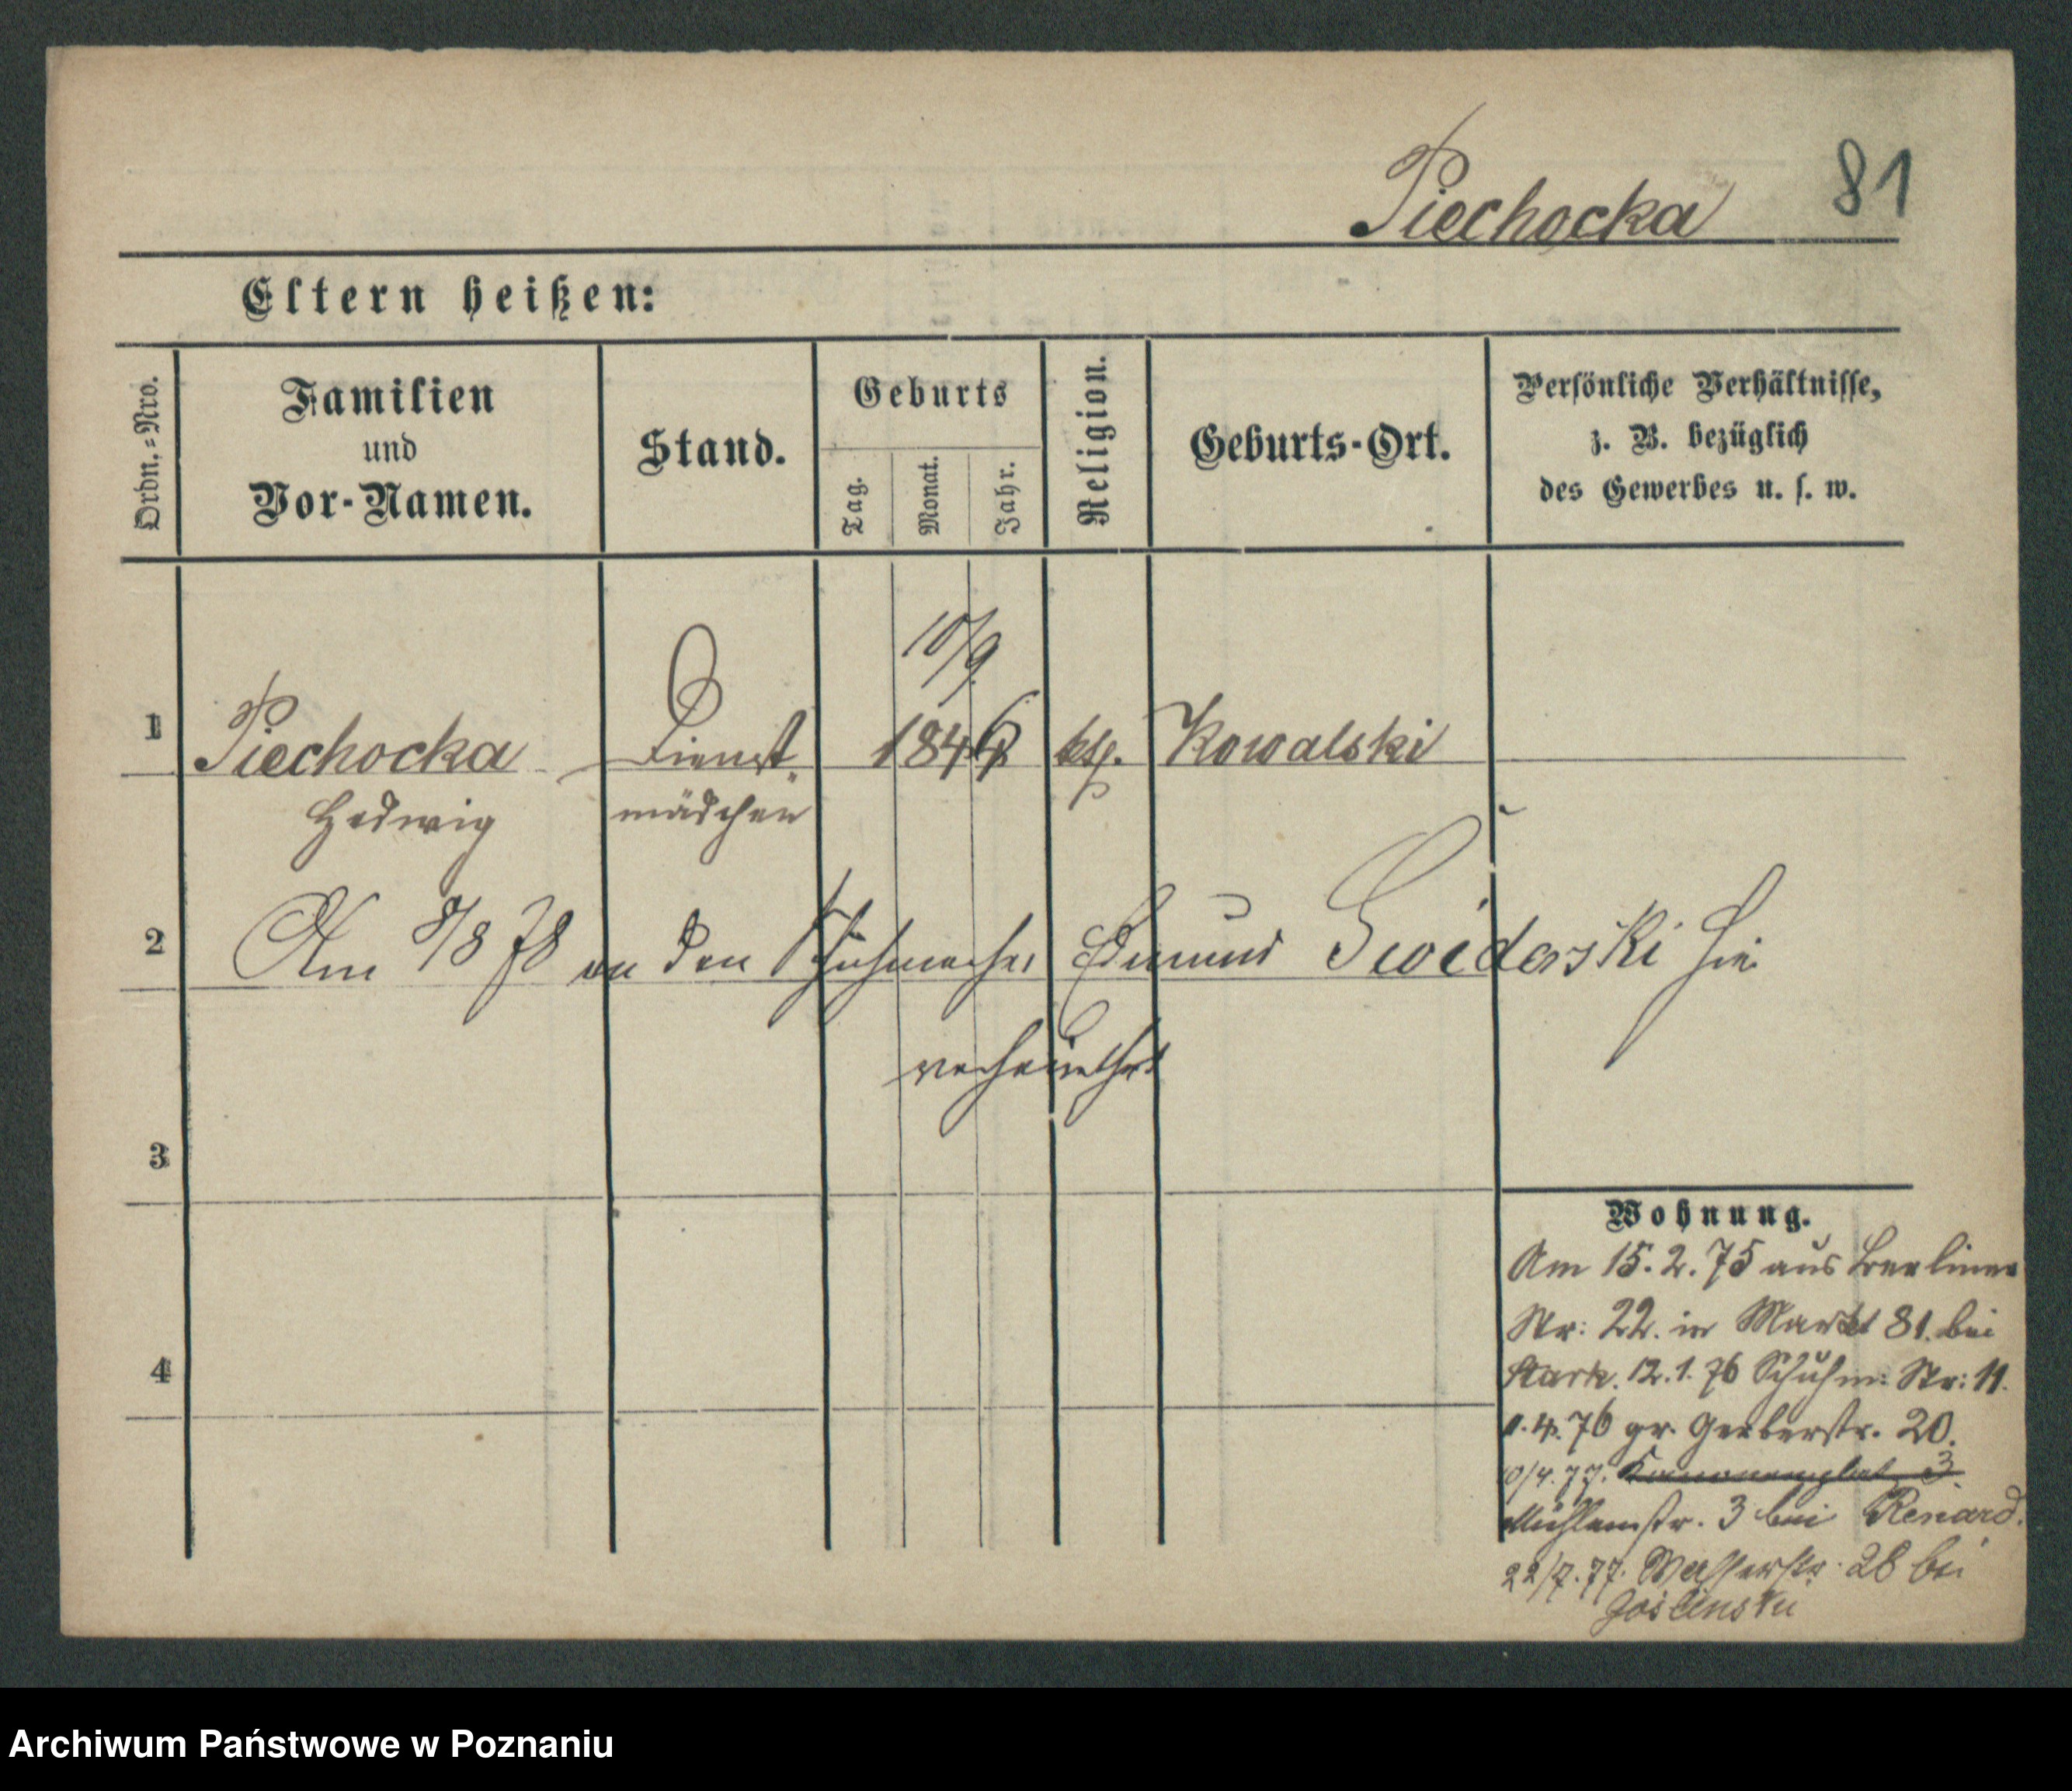 Piechocka 81
Eltern heißen:
Ordn.=Nro.
Familien
und
Vor-Namen.
Stand.
Geburts
Tag.
Monat.
Jahr.
Religion.
Geburts-Ort.
Persönliche Verhältnisse,
z. B. bezüglich
des Gewerbes u. s. w.
10/9.
1 Piechocka Dienst- 1846 ktsch. Kowalski
Hedwig mädchen
2 Am 9/8 78 an den Schuhmacher Edmund Swiderski hie
verheirathet
3
Wohnung.
Am 15.2.75 aus Berliner
Str: 22. in Markt 81. bei
Stark. 12.1.76 Schuhm: Str: 11.
4
1.4.76 gr. Gerberstr. 20.
10/4.77. Kanonenplatz 3
Mühlenstr. 3 bei Renard.
22/7.77. Wasserstr. 28 bei
Joslinski
Archiwum Państwowe w Poznaniu